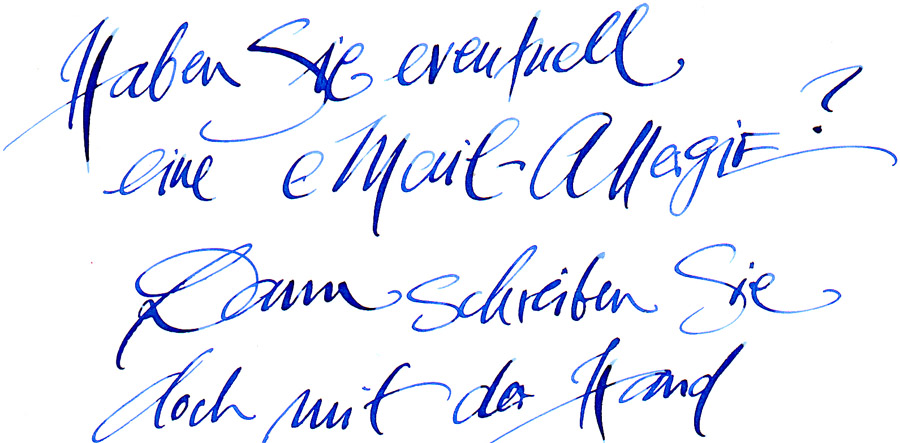 Haben Sie eventuell
eine eMail-Allergie?
Dann schreiben Sie
doch mit der Hand